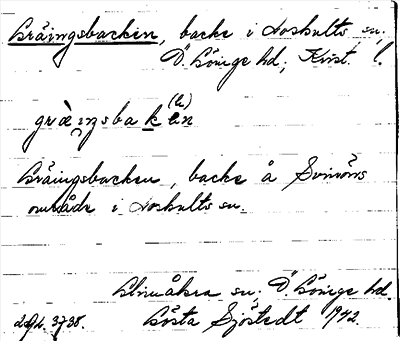 Gräingsbacken, backe i Loshults sn,
Ö. Göinge hd; Krist. l.
(h)
græ̀ i̯ŋsbakən
Gräingsbacken, backe å Svinöns
område i Loshults sn.
sn, Ö. Göinge hd.
Gösta Sjöstedt 1942.